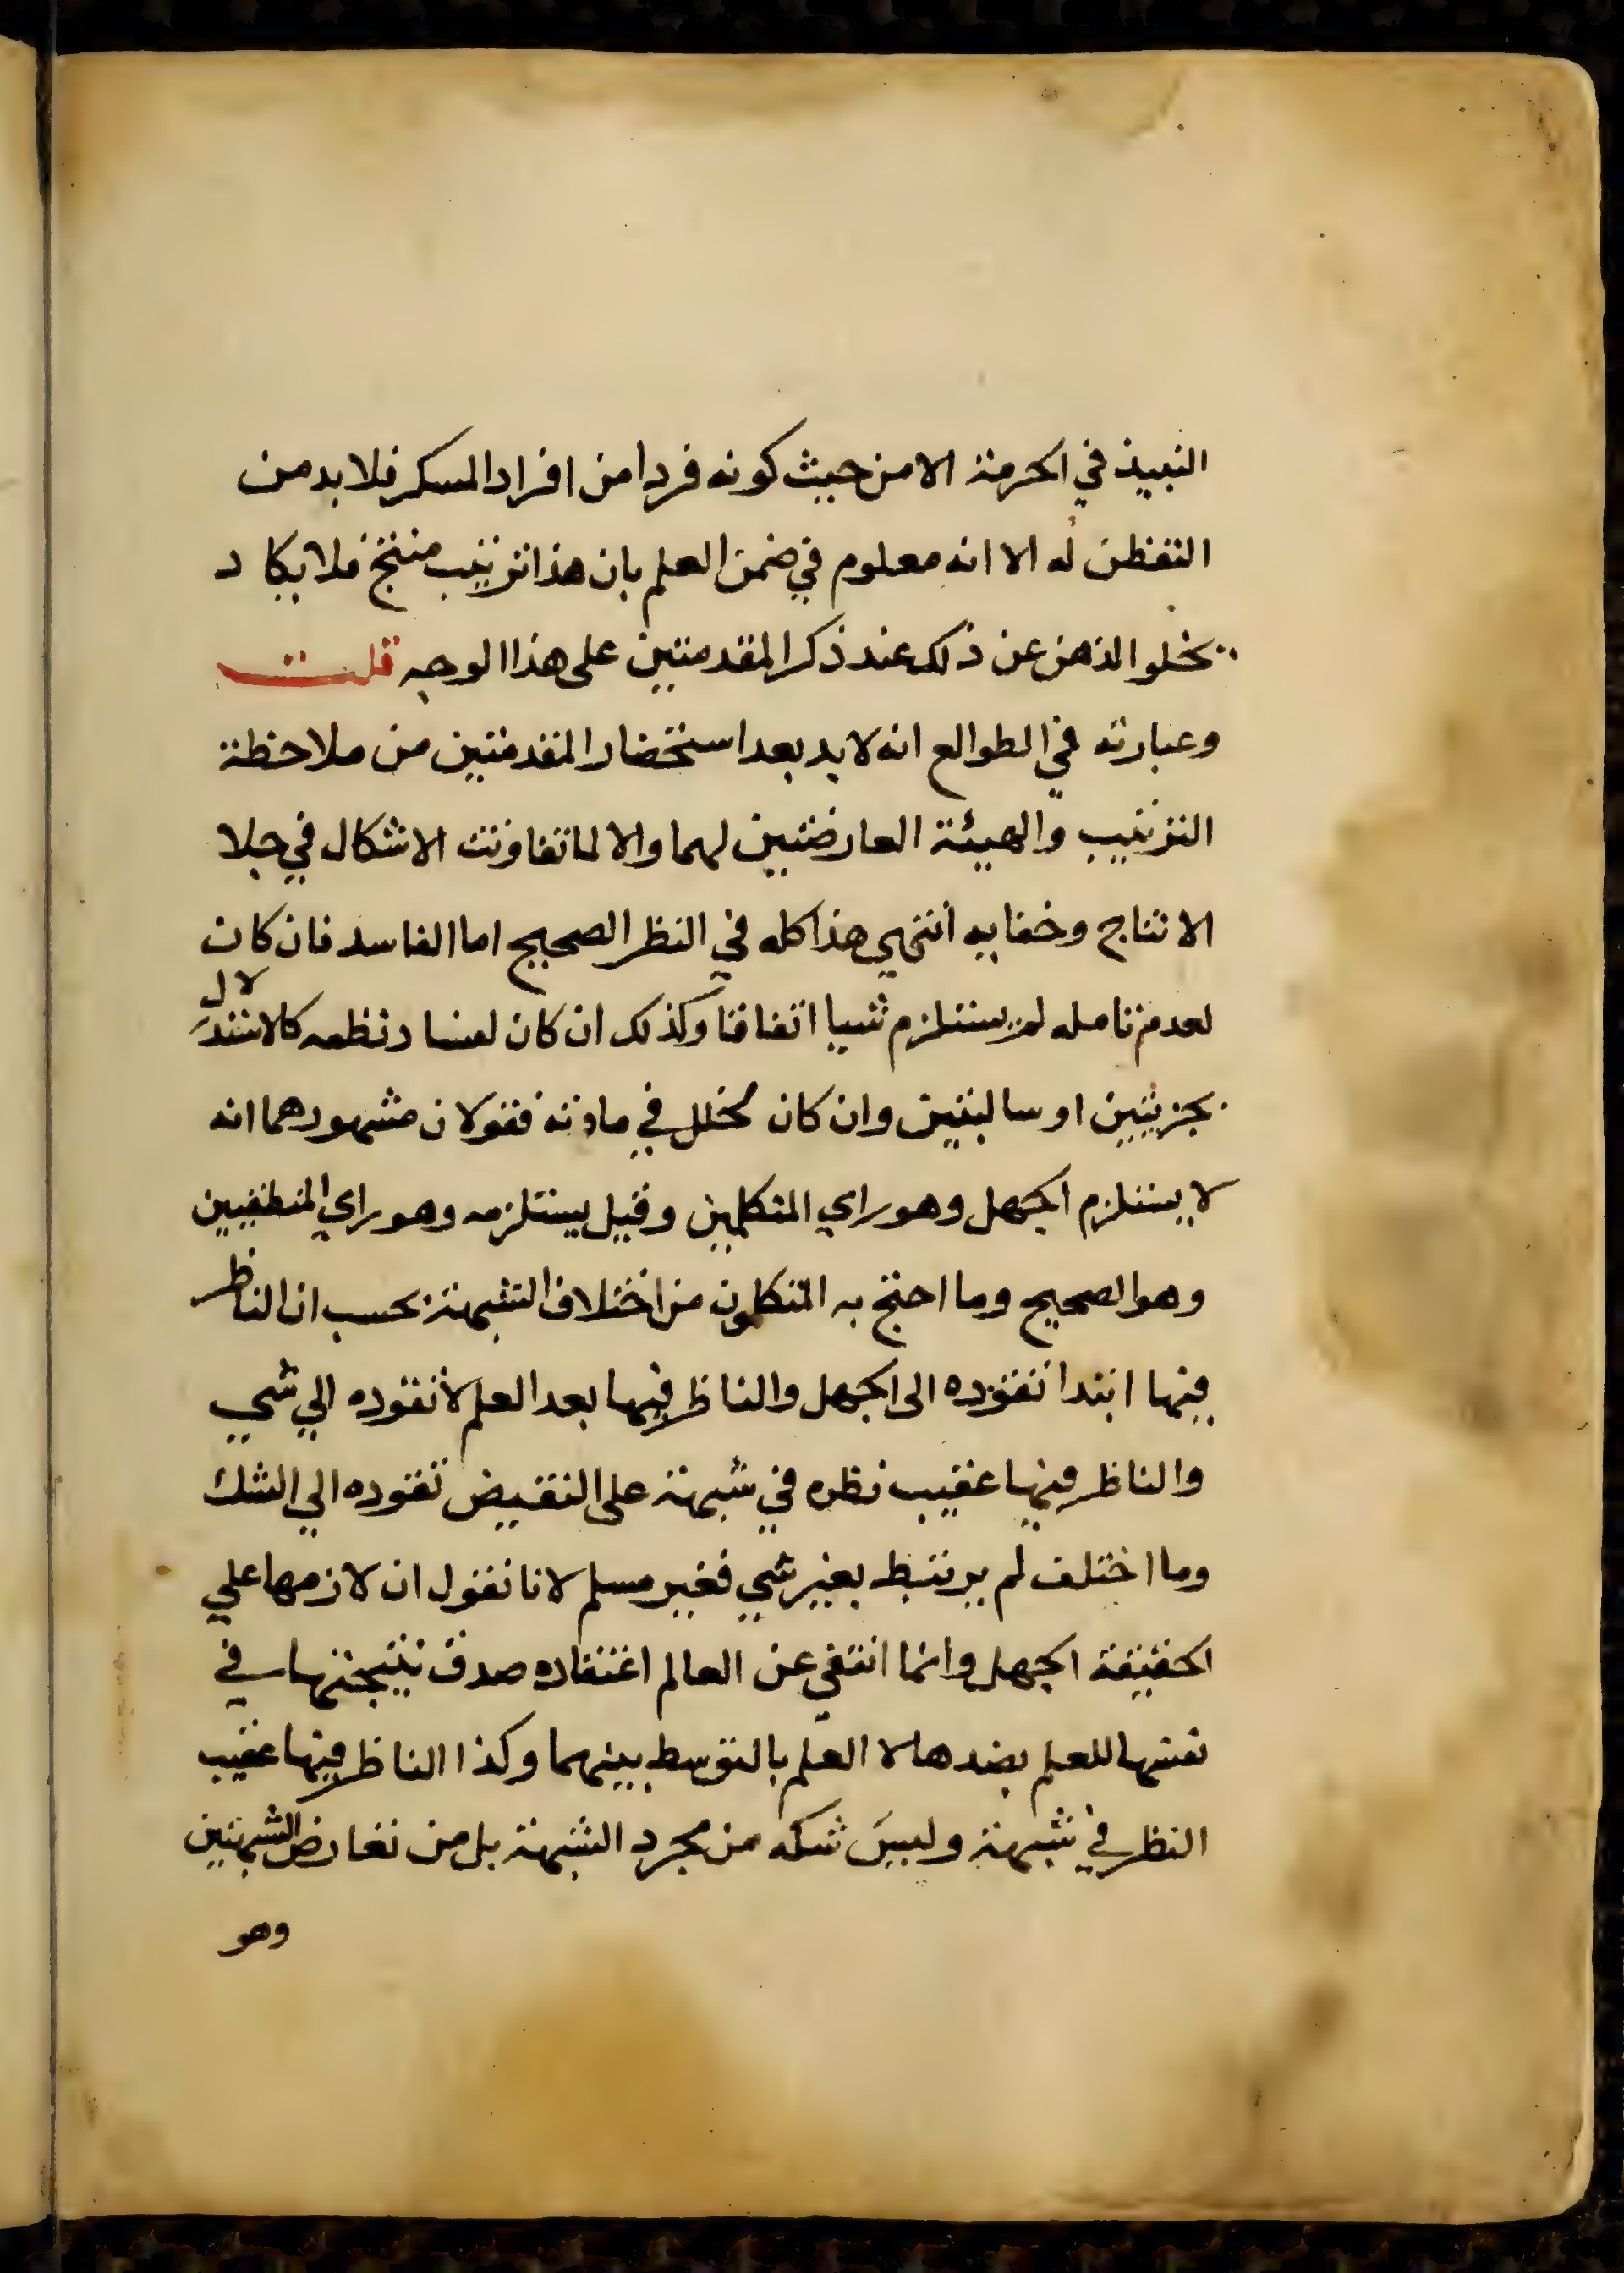 النبيذ في الحرمة الا من حيث كونه فردا من افراد المسكر فلا بد من
التفطن له الا انه معلوم في ضمن العلم بان هذا ترتيب منتج فلا يكاد
يخلو الذهن عن ذلك عند ذكر المقدمتين على هذا الوجه قلت
وعبارته في الطوالع انه لا بد بعد استحضار المقدمتين من ملاحظة
الترتيب والهيئة العارضتين لهما والا لما تفاوتت الاشكال في جلا
الانتاج وخفايه انتهى هذا كله في النظر الصحيح اما الفاسد فان كان
لعدم تامله لم يستلزم شيا اتفاقا وكذلك ان كان لفساد نظمه كالاستدلال
بجزيتين او سالبتين وان كان لخلل في مادته فقولان مشهورهما انه
لا يستلزم الجهل وهو راي المتكلمين وقيل يستلزمه وهو راي المنطقيين
وهو الصحيح وما احتج به المتكلمون من اختلاف الشبهة بحسب ان الناظر
فيها ابتدا تقوده الى الجهل والناظر فيها بعد العلم لا تقوده الي شي
والناظر فيها عقيب نظره في شبهة على النقيض تقوده الي الشك
وما اختلف لم يرتبط بغير شي فغير مسلم لانا نقول ان لازمها علي
الحقيقة الجهل وانما انتفي عن العالم اعتقاده صدق نتيجتها في
نفسها للعلم بضدها لا العلم بالتوسط بينهما وكذا الناظر فيها عقيب
النظر في شبهة وليس شكه من مجرد الشبهة بل من تعارض الشبهتين
وهو